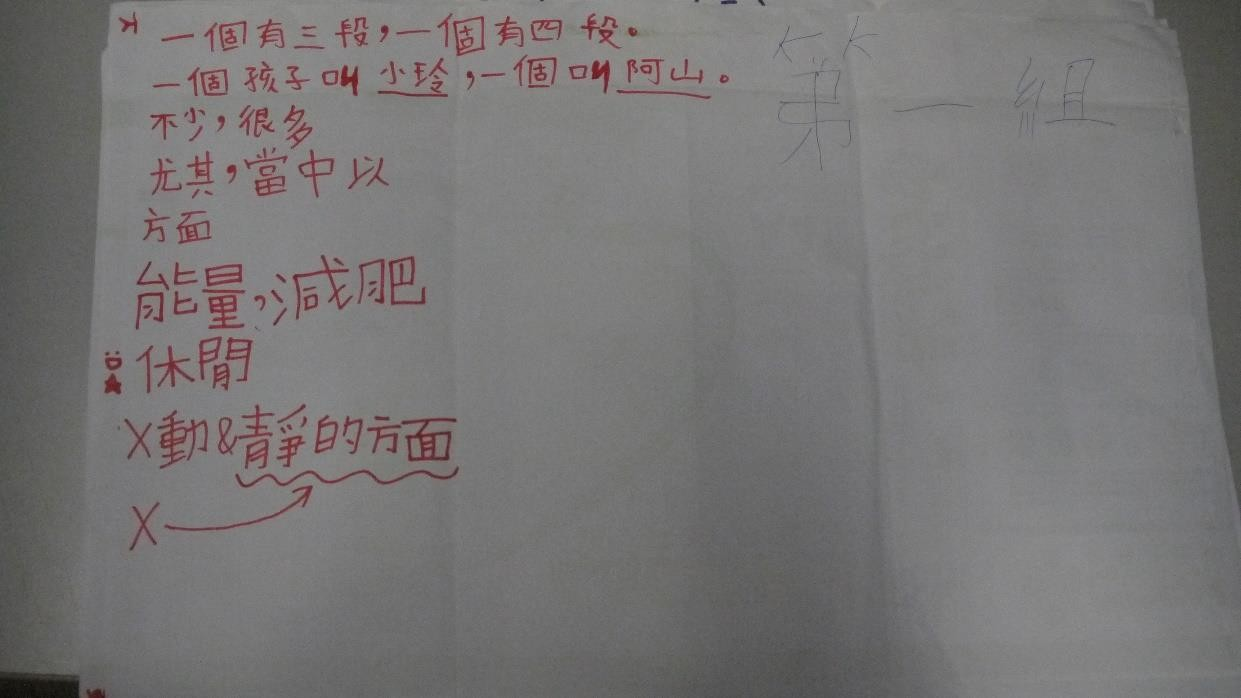 一個有三段，一個有四段。
第一組
一個孩子叫小玲，一個叫阿山。
不少，很多
尤其，當中以
方面
能量，減肥
休閒
X動&靜的方面
X